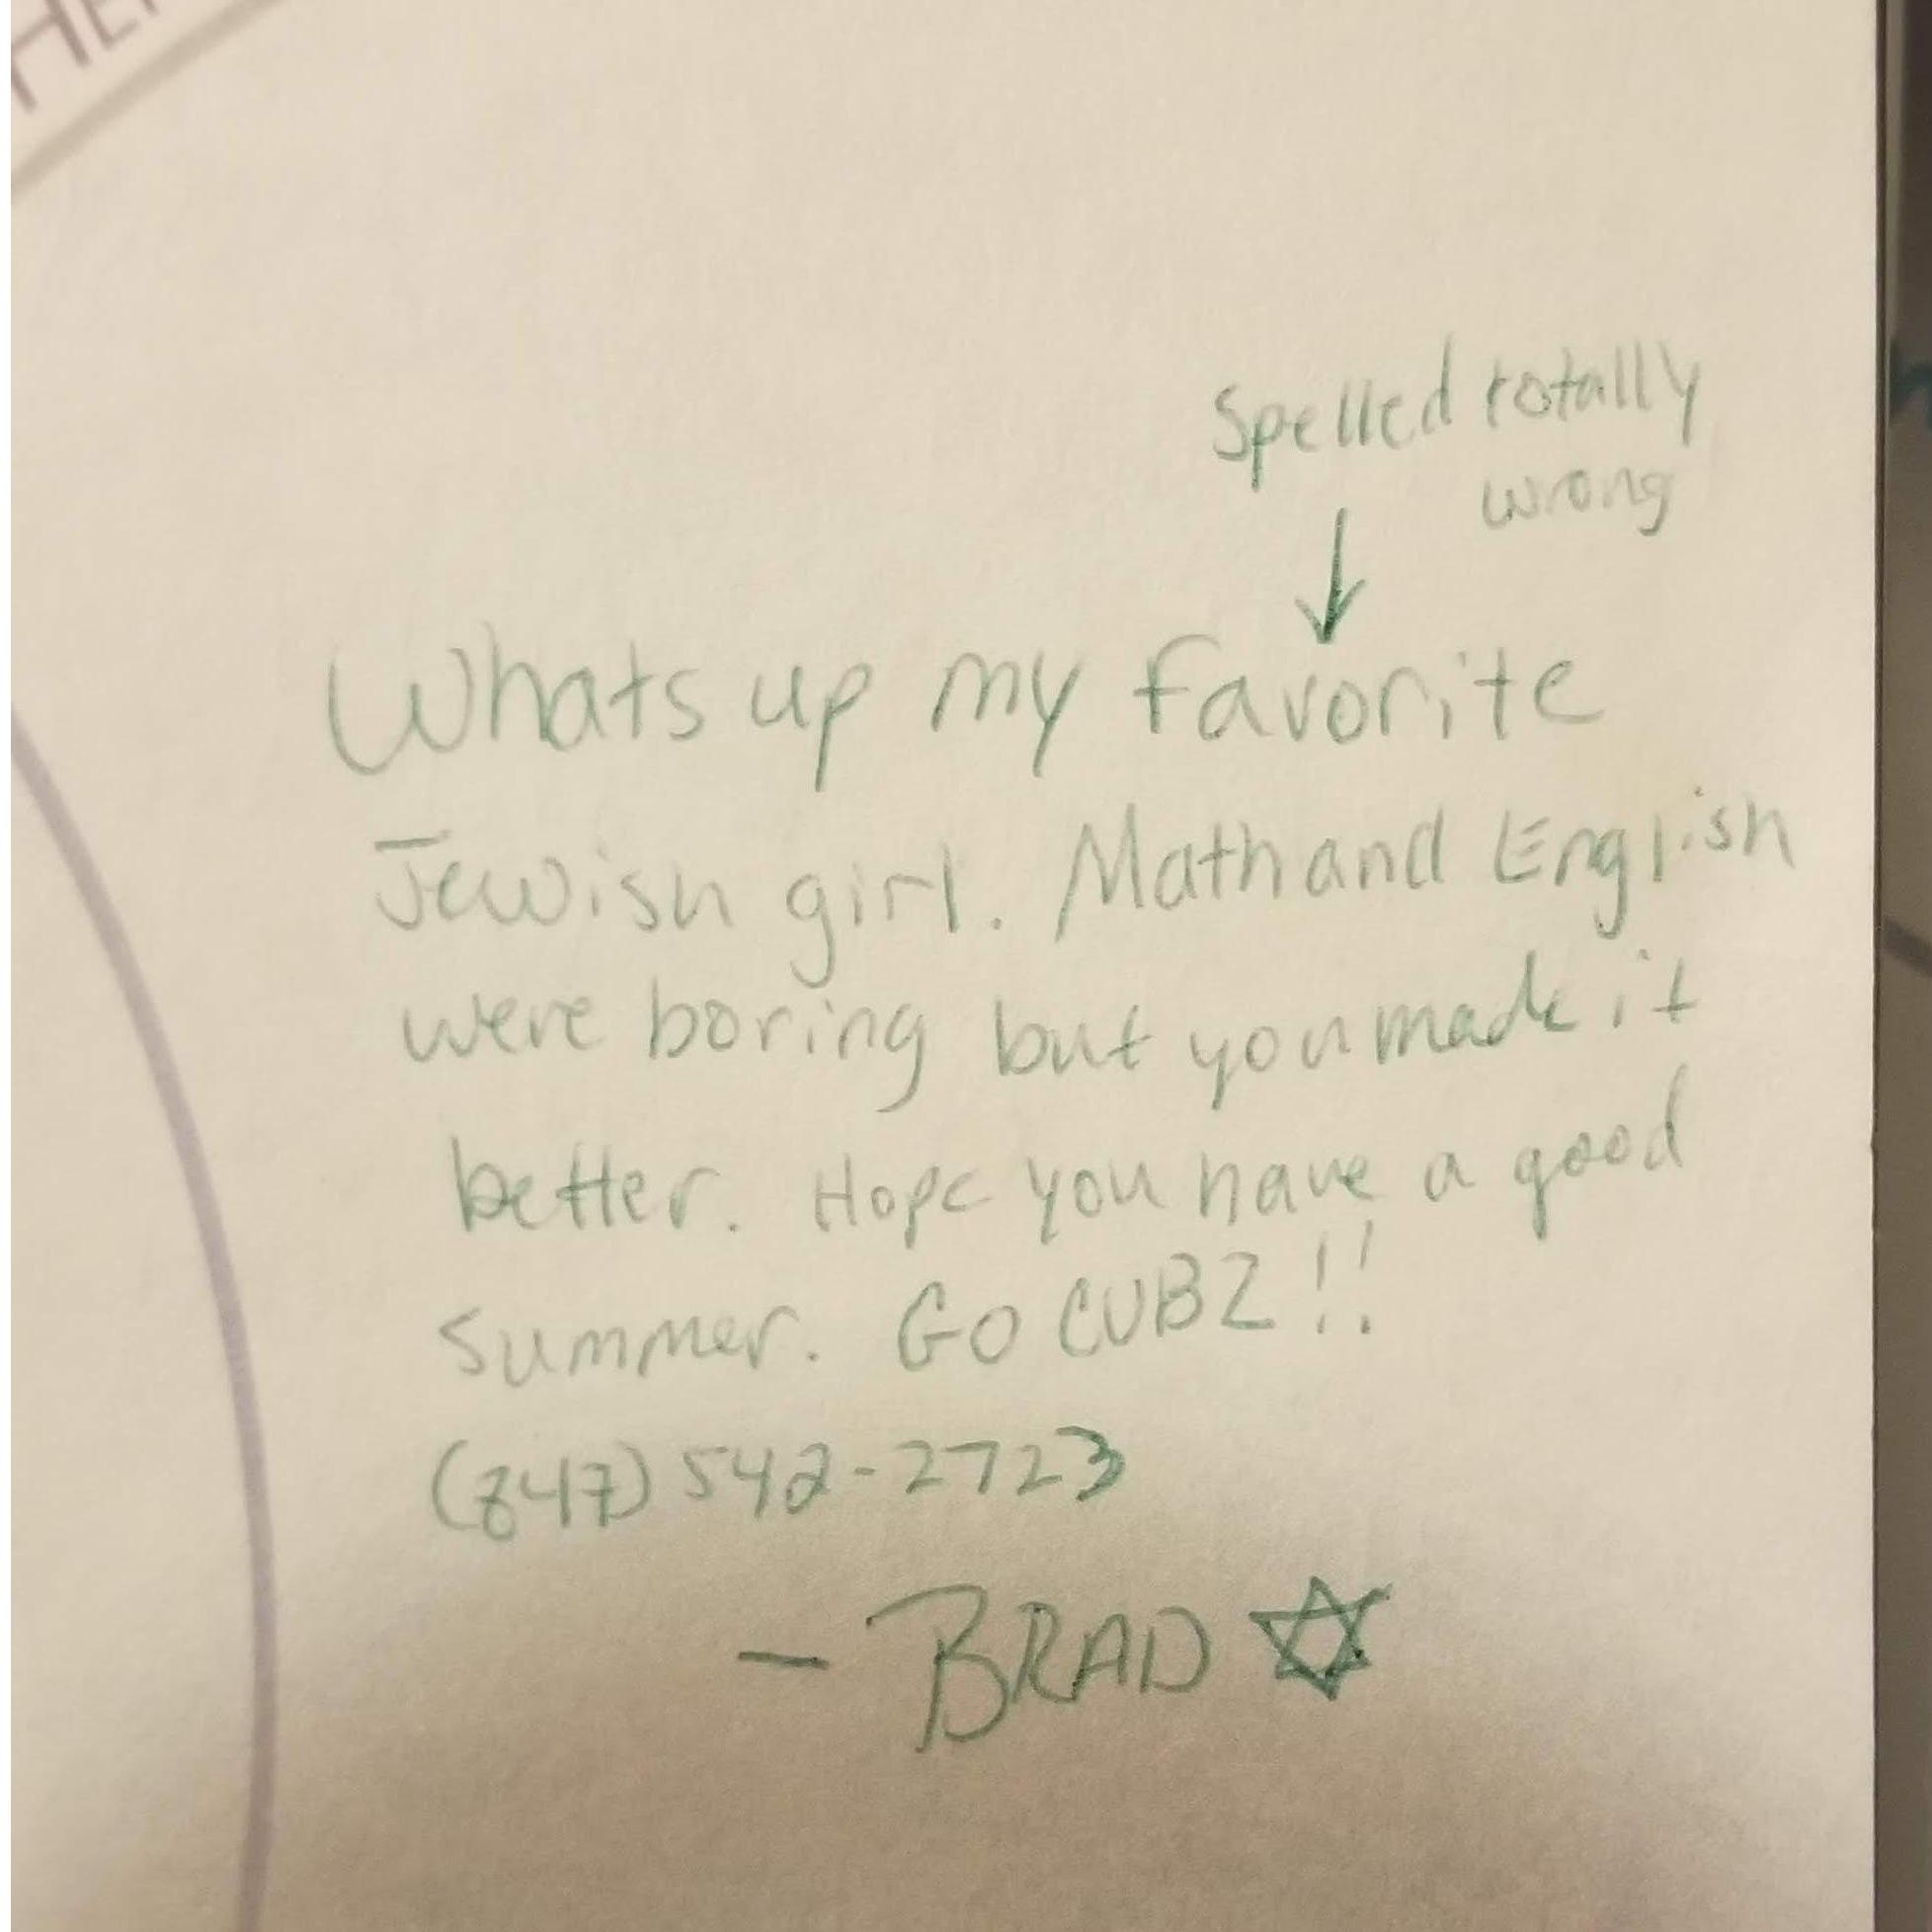 Spelled totally
wrong
Whats up my favorite
Jewish girl. Math and English
were boring but you made it
better. Hope you have a good
summer. GO CUBZ!!
(847) 542-2723
- BRAD